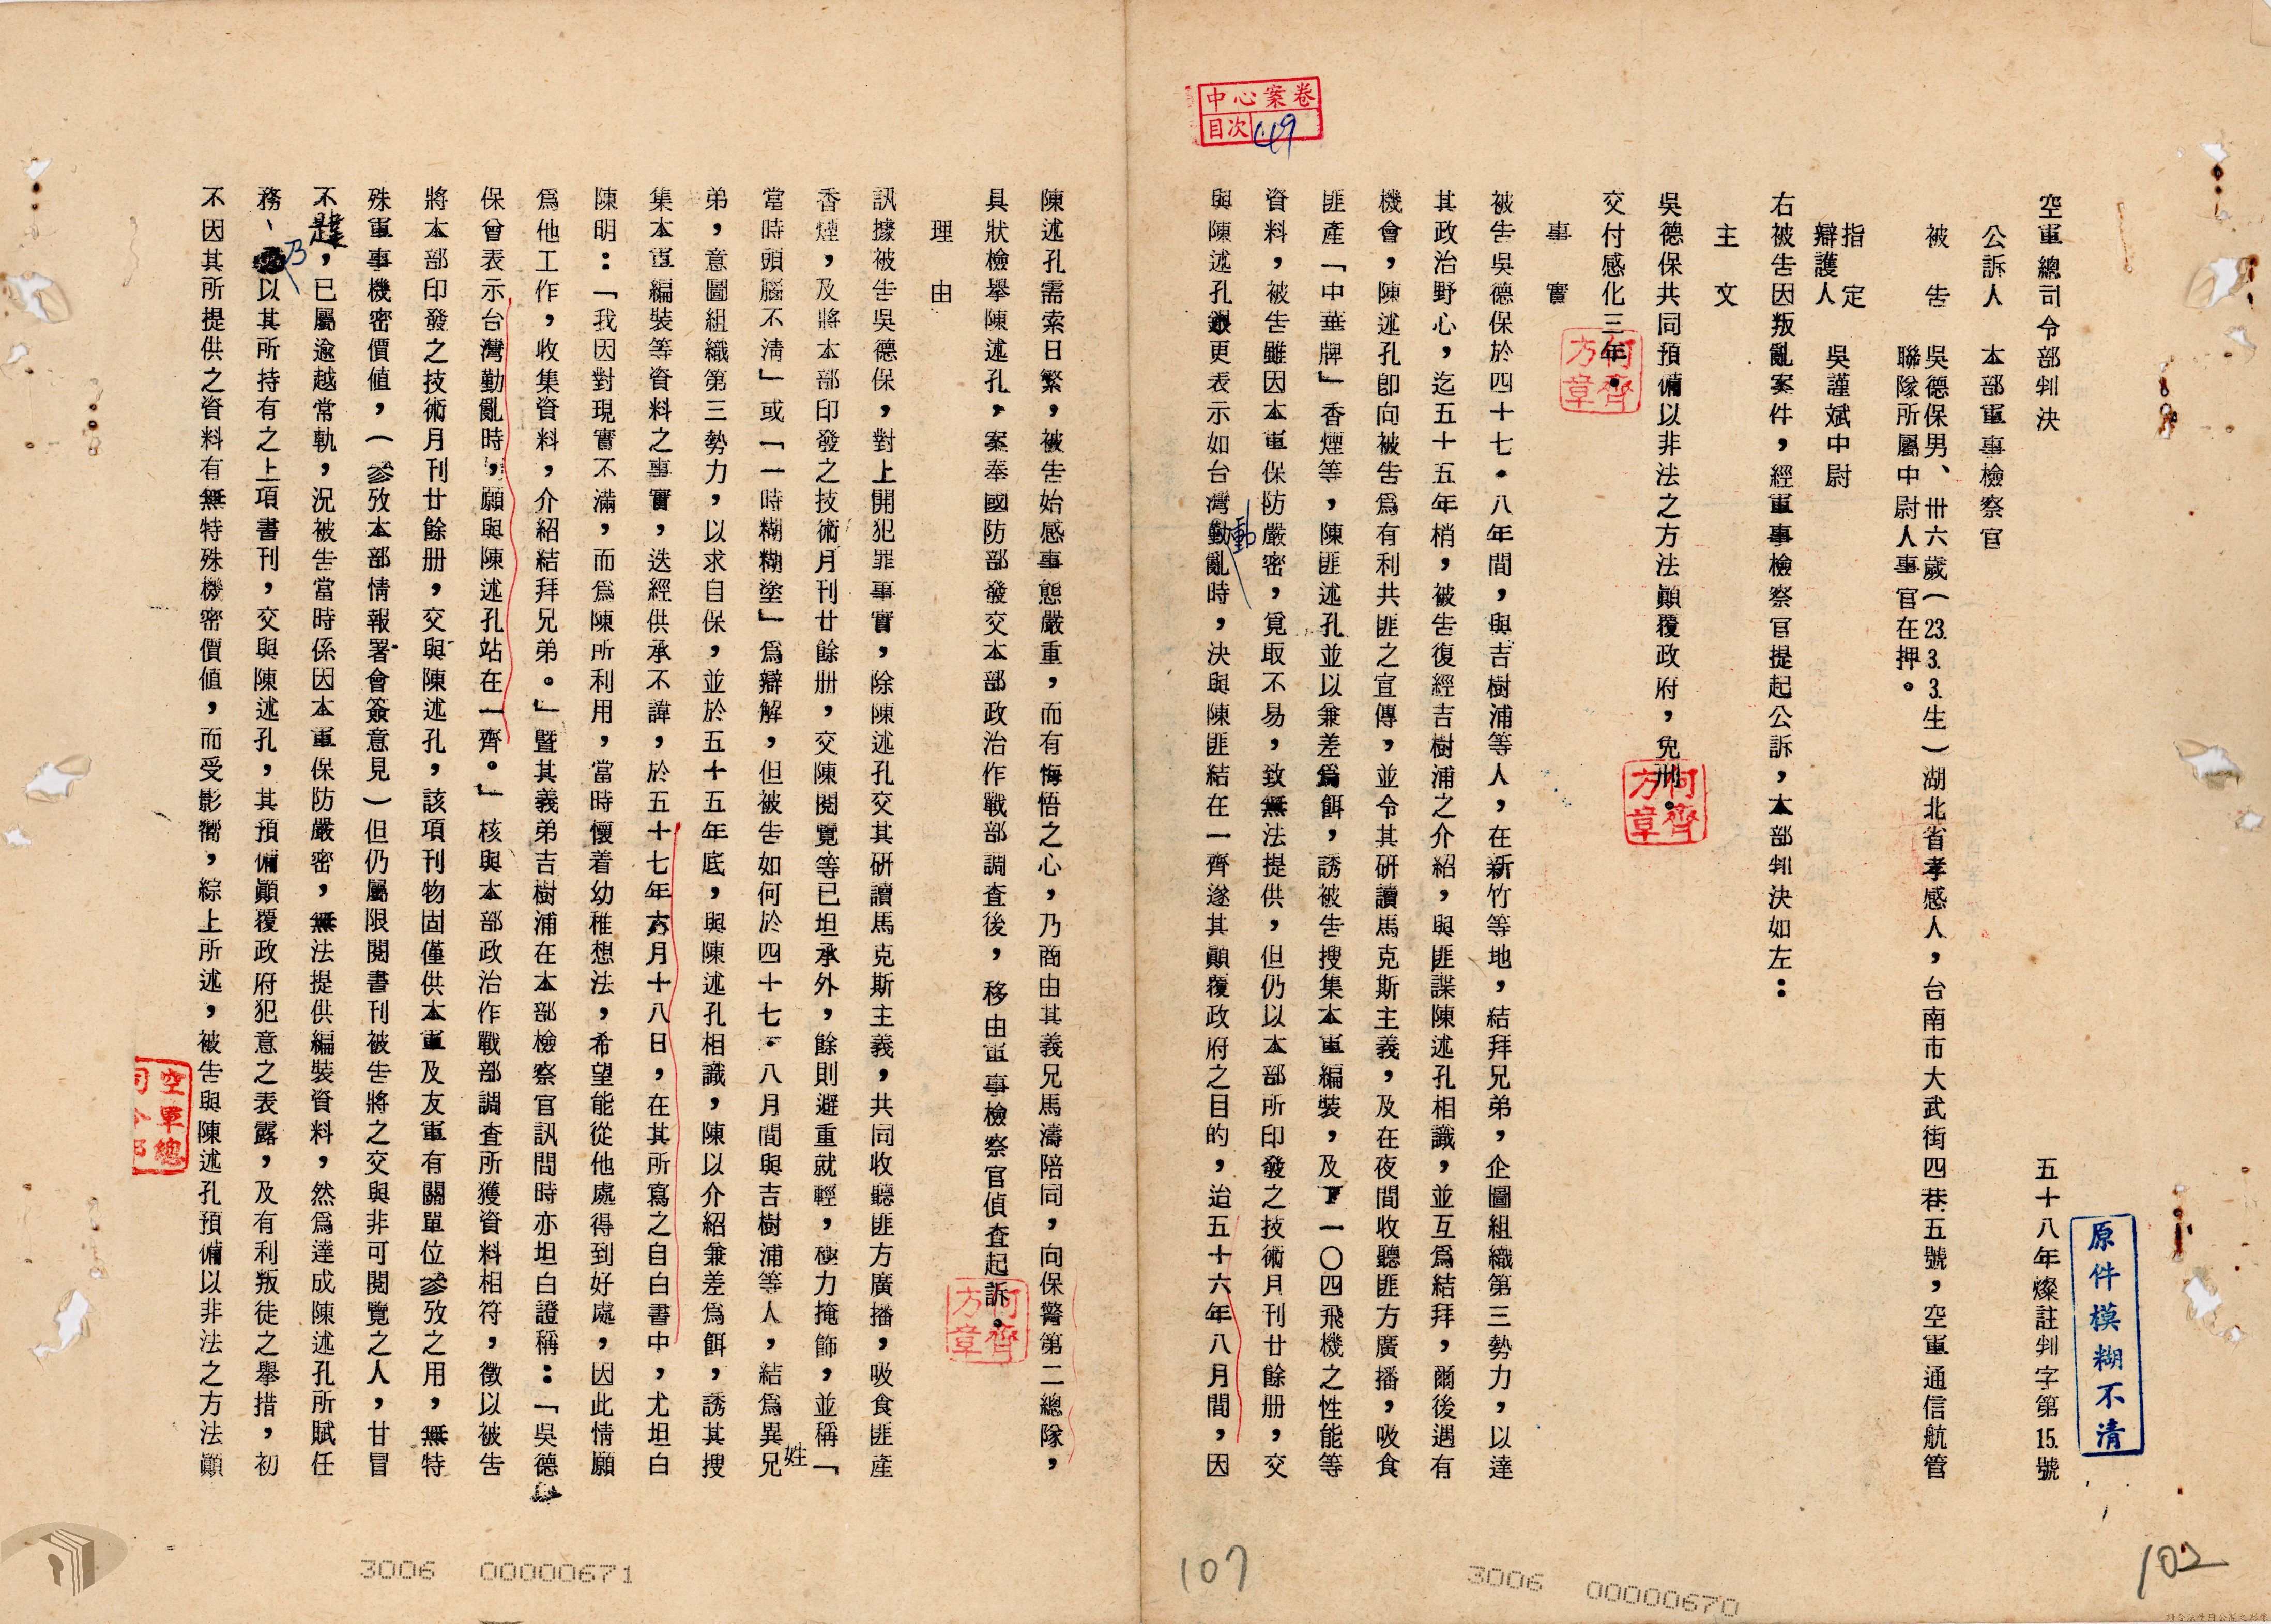 中心案卷
目次 119
原件模糊不清
空軍總司令部判決
五十八年燦註判字第15.號
公訴人 本部軍事檢察官
被告 吳德保男、卅六歲(23.3.3.生)湖北省孝感人,台南市大武街四巷五號,空軍通信航管
聯隊所屬中尉人事官在押。
指定
辯護人 吳謹斌中尉
右被告因叛亂案件,經軍事檢察官提起公訴,本部判決如左:
主文
吳德保共同預備以非法之方法顚覆政府,免刑。
交付感化三年。
事實
被告吳德保於四十七.八年間,與吉樹浦等人,在新竹等地,結拜兄弟,企圖組織第三勢力,以達
其政治野心,迄五十五年梢,被告復經吉樹浦之介紹,與匪諜陳述孔相識,並互爲結拜,爾後遇有
機會,陳述孔卽向被告爲有利共匪之宣傳,並令其研讀馬克斯主義,及在夜間收聽匪方廣播,吸食
匪產「中華牌」香煙等,陳匪述孔並以兼差爲餌,誘被告搜集本軍編裝,及F一〇四飛機之性能等
資料,被告雖因本軍保防嚴密,覓取不易,致無法提供,但仍以本部所印發之技術月刊廿餘册,交
與陳述孔 更表示如台灣動亂時,決與陳匪結在一齊遂其顚覆政府之目的,迨五十六年八月間,因
陳述孔需索日繁,被告始感事態嚴重,而有悔悟之心,乃商由其義兄馬濤陪同,向保警第二總隊,
具狀檢舉陳述孔,案奉國防部發交本部政治作戰部調查後,移由軍事檢察官偵查起訴。
理由
訊據被告吳德保,對上開犯罪事實,除陳述孔交其研讀馬克斯主義,共同收聽匪方廣播,吸食匪產
香煙,及將本部印發之技術月刊廿餘册,交陳閱覽等已坦承外,餘則避重就輕,極力掩飾,並稱「
當時頭腦不淸」或「一時糊糊塗」爲辯解,但被告如何於四十七.八月間與吉樹浦等人,結爲異姓兄
弟,意圖組織第三勢力,以求自保,並於五十五年底,與陳述孔相識,陳以介紹兼差爲餌,誘其搜
集本軍編裝等資料之事實,迭經供承不諱,於五十七年六月十八日,在其所寫之自白書中,尤坦白
陳明:「我因對現實不滿,而爲陳所利用,當時懷着幼稚想法,希望能從他處得到好處,因此情願
爲他工作,收集資料,介紹結拜兄弟。」暨其義弟吉樹浦在本部檢察官訊問時亦坦白證稱:「吳德
保曾表示台灣動亂時,願與陳述孔站在一齊。」核與本部政治作戰部調查所獲資料相符,徵以被告
將本部印發之技術月刊廿餘册,交與陳述孔,該項刊物固僅供本軍及友軍有關單位參攷之用,無特
殊軍事機密價値,(參攷本部情報署會簽意見)但仍屬限閱書刊被告將之交與非可閱覽之人,甘冒
不韙,已屬逾越常軌,況被告當時係因本軍保防嚴密,無法提供編裝資料,然爲達成陳述孔所賦任
務、乃以其所持有之上項書刊,交與陳述孔,其預備顚覆政府犯意之表露,及有利叛徒之舉措,初
不因其所提供之資料有無特殊機密價値,而受影響,綜上所述,被告與陳述孔預備以非法之方法顚
何齊方章
何齊方章
何齊方章
空軍總司令部
3006 00000671
107
3006 00000670
102
請合法使用公開之影像